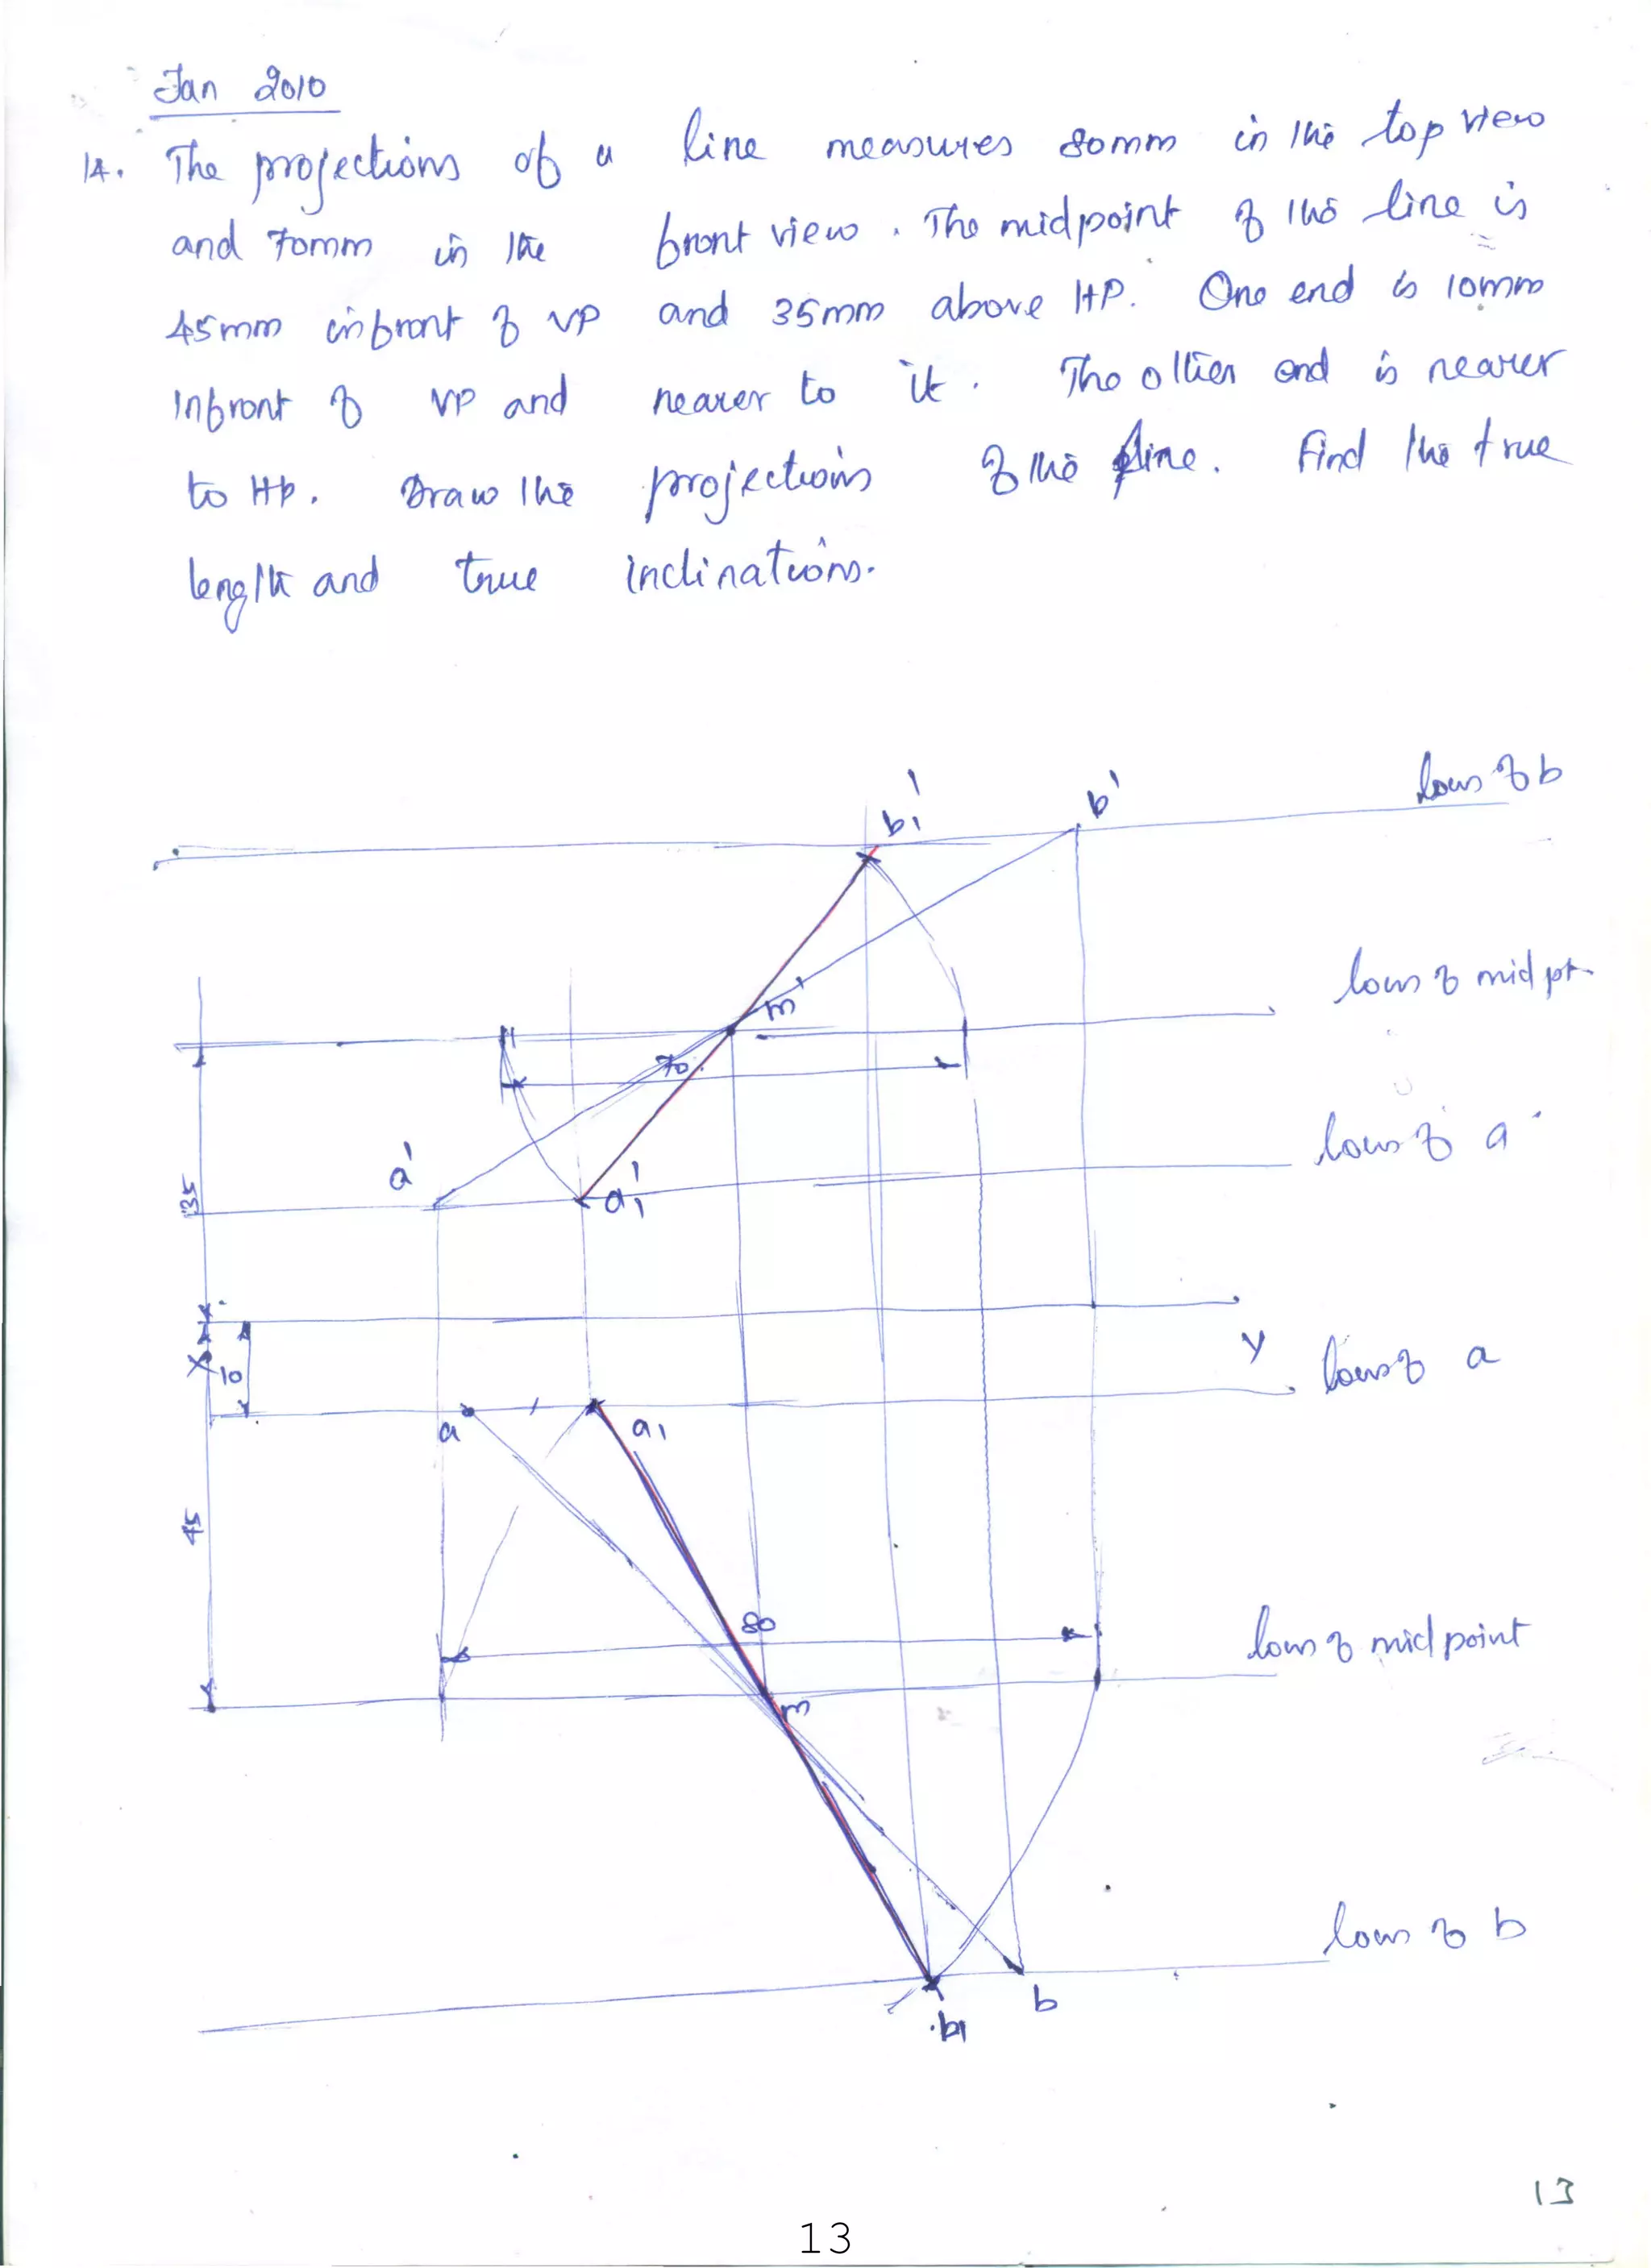 Jan 2010
14. The projections of a line measures 80mm in the top view
and 70mm in the front view. The midpoint of the line is
45mm infront of VP and 35mm above HP. One end is 10mm
Infront of VP and nearer to it. The other end is nearer
to HP. Draw the projections of the line. Find the true
length and true inclinations.
locus of b
b1' b'
locus of mid pt.
m'
70
locus of a
a' a1'
35
X Y
10
locus of a
a a1
45
80
locus of midpoint
m
locus of b
b1 b
13
13